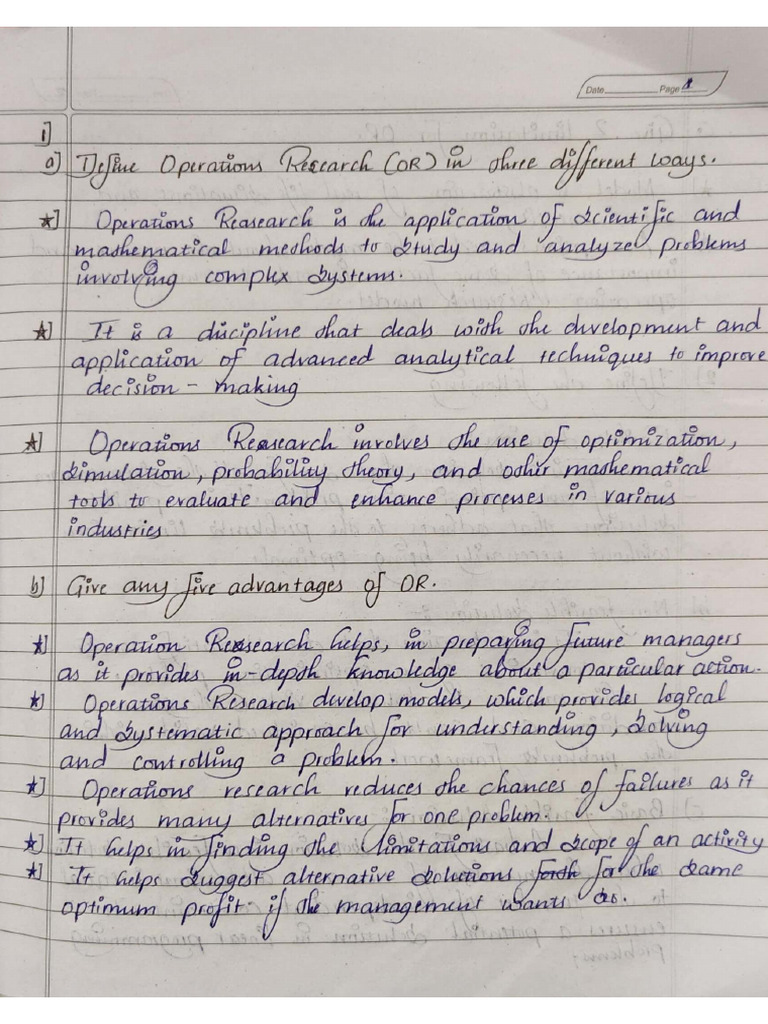 Date Page 1
1]
a] Define Operations Research (OR) in three different ways.
*] Operations Reasearch is the application of scientific and
mathematical methods to study and analyze problems
involving complex systems.
*] It is a discipline that deals with the development and
application of advanced analytical techniques to improve
decision - making
*] Operations Research involves the use of optimization,
simulation, probability theory, and other mathematical
tools to evaluate and enhance processes in various
industries
b] Give any five advantages of OR.
*] Operation Research helps, in preparing future managers
as it provides in-depth knowledge about a particular action.
*] Operations Research develop models, which provides logical
and systematic approach for understanding, solving
and controlling a problem.
*] Operations research reduces the chances of failures as it
provides many alternatives for one problem.
*] It helps in finding the limitations and scope of an activity
*] It helps suggest alternative solutions for the same
optimum profit if the management wants so.